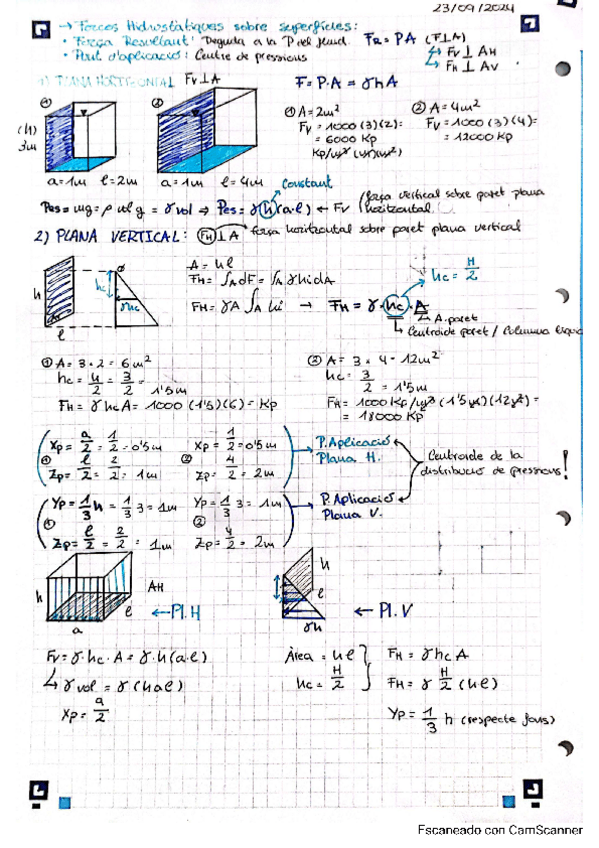 23/09/2024
→ Forces Hidrostàtiques sobre superfícies:
• Força Resultant: Deguda a la P del fluid. FR = PA (F⊥A)
• Punt d'aplicació: Centre de pressions
Fv ⊥ AH
FH ⊥ Av
1) PLANA HORITZONTAL Fv⊥A F = P·A = γhA
① ②
(h) 3m
a=1m l=2m a=1m l=4m
① A = 2m²
Fv = 1000 (3)(2) =
= 6000 Kp
② A = 4m²
Fv = 1000 (3)(4) =
= 12000 Kp
Constant
Pes = mg = ρ vol g = γ vol ⇒ Pes = γ(h)(a·l) ← Fv (força vertical sobre paret plana horitzontal.
2) PLANA VERTICAL: FH⊥A força horitzontal sobre paret plana vertical
h l hc γhc
A = hl
FH = ∫A dF = ∫A γhidA
FH = γA ∫A hi → FH = γ·hc·A
hc = H/2
A. paret
Centroide paret / Columna
① A = 3 · 2 = 6m²
hc = h/2 = 3/2 = 1'5m
FH = γhcA = 1000 (1'5)(6) = Kp
② A = 3 · 4 = 12m²
hc = 3/2 = 1'5m
FH = 1000 Kp/m³ (1'5m)(12m²) =
= 18000 Kp
① Xp = a/2 = 1/2 = 0'5m
Zp = l/2 = 2/2 = 1m
② Xp = 1/2 = 0'5m
Zp = 4/2 = 2m
P. Aplicació
Plana H.
Centroide de la
distribució de pressions!
① Yp = 1/3 h = 1/3 3 = 1m
Zp = l/2 = 2/2 = 1m
② Yp = 1/3 3 = 1m
Zp = 4/2 = 2m
P. Aplicació
Plana V.
h a l AH ← Pl. H
h l γh ← Pl. V
Fv = γ·hc·A = γ·h(a·l)
↳ γ vol = γ(hal)
Xp = a/2
Àrea = hl
hc = H/2
FH = γhcA
FH = γ H/2 (hl)
Yp = 1/3 h (respecte fons)
Escaneado con CamScanner